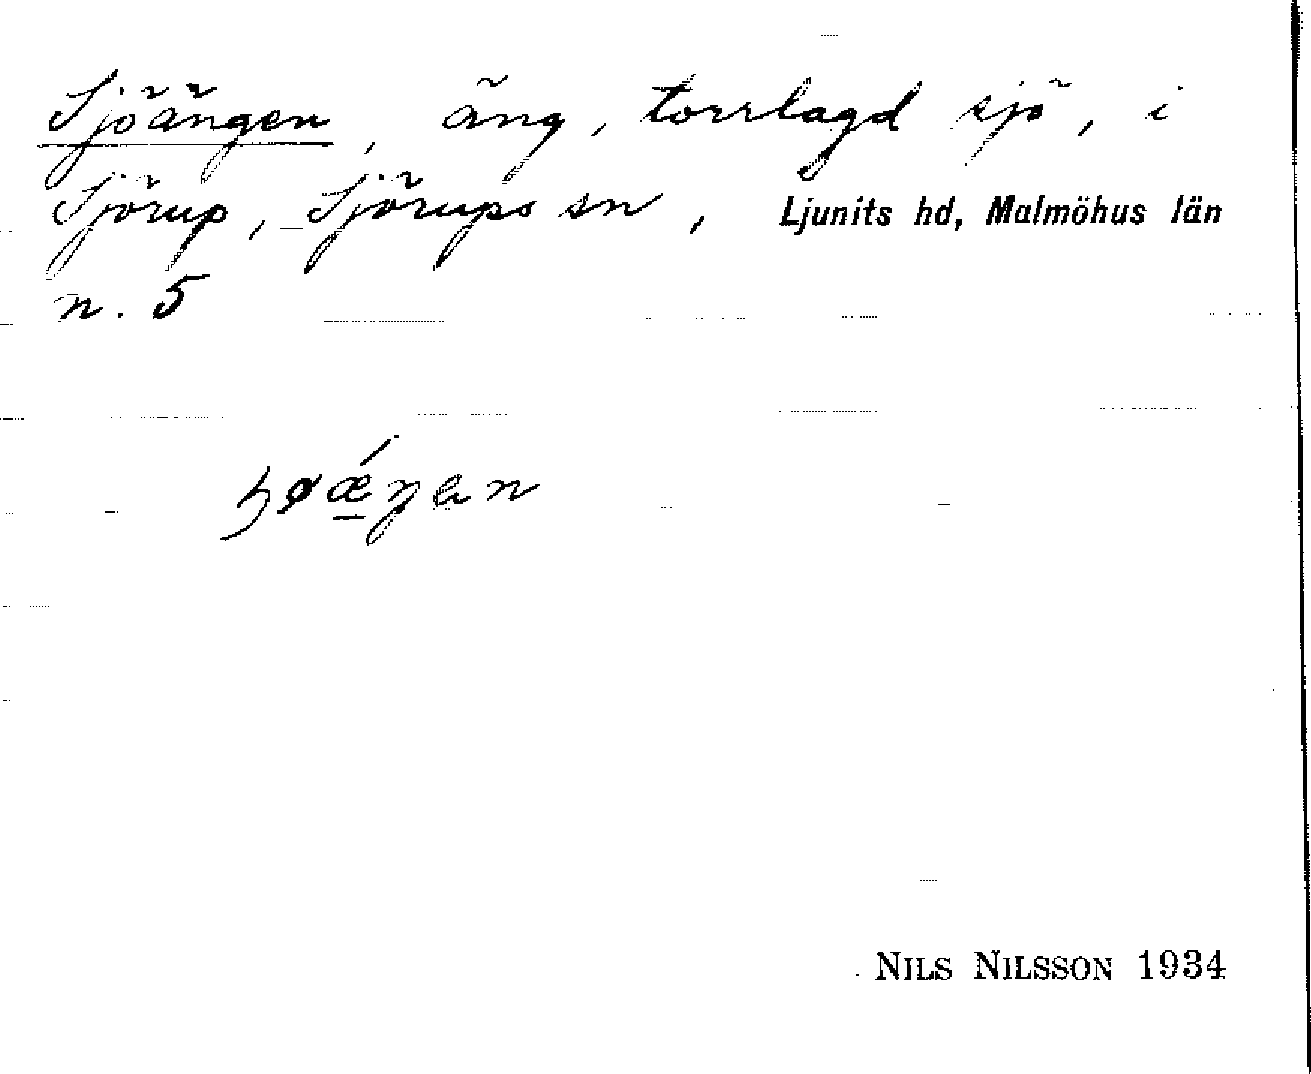 Sjöängen, äng, torrlagd sjö, i
Sjörup, Sjörups sn, Ljunits hd, Malmöhus län
n. 5
NILS NILSSON 1934